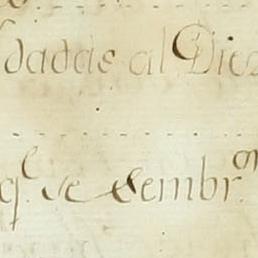 dadas al Diez
q.e se sembr.on